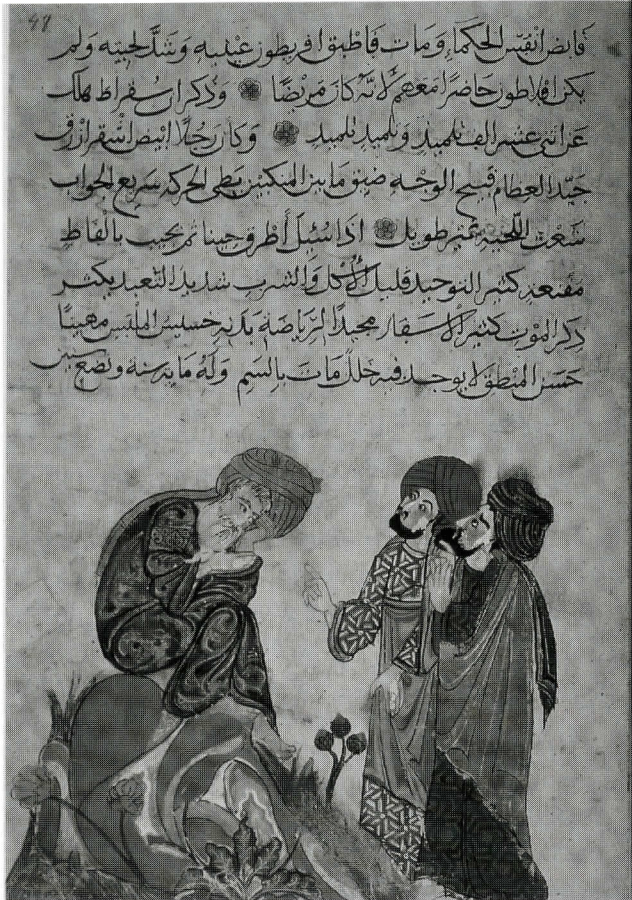 48
قابض انفس الحكماء ومات فاطبق افريطون عينيه وشد لحييه ولم
يكن افلاطون حاضرا معهم لانه كان مريضا وذكر ان سقراط هلك
عن اثنى عشر الف تلميذ وتلميذ تلميذ وكان رجلا ابيض اشقر ازرق
جيد العظام قبيح الوجه ضيق ما بين المنكبين بطى الحركه سريع الجواب
شعث اللحيه غير طويل اذا سئل أطرق حينا ثم يجيب بالفاظ
مقنعه كثير التوحد قليل الاكل والشرب شديد التعبد يكثر
ذكر الموت كثير الاسفار مجيدا لرياضة بدنه خسيس الملبس مهيبا
حسن المنطق لا يوجد فيه خلل مات بالسم وله مايه سنه وبضع سنين